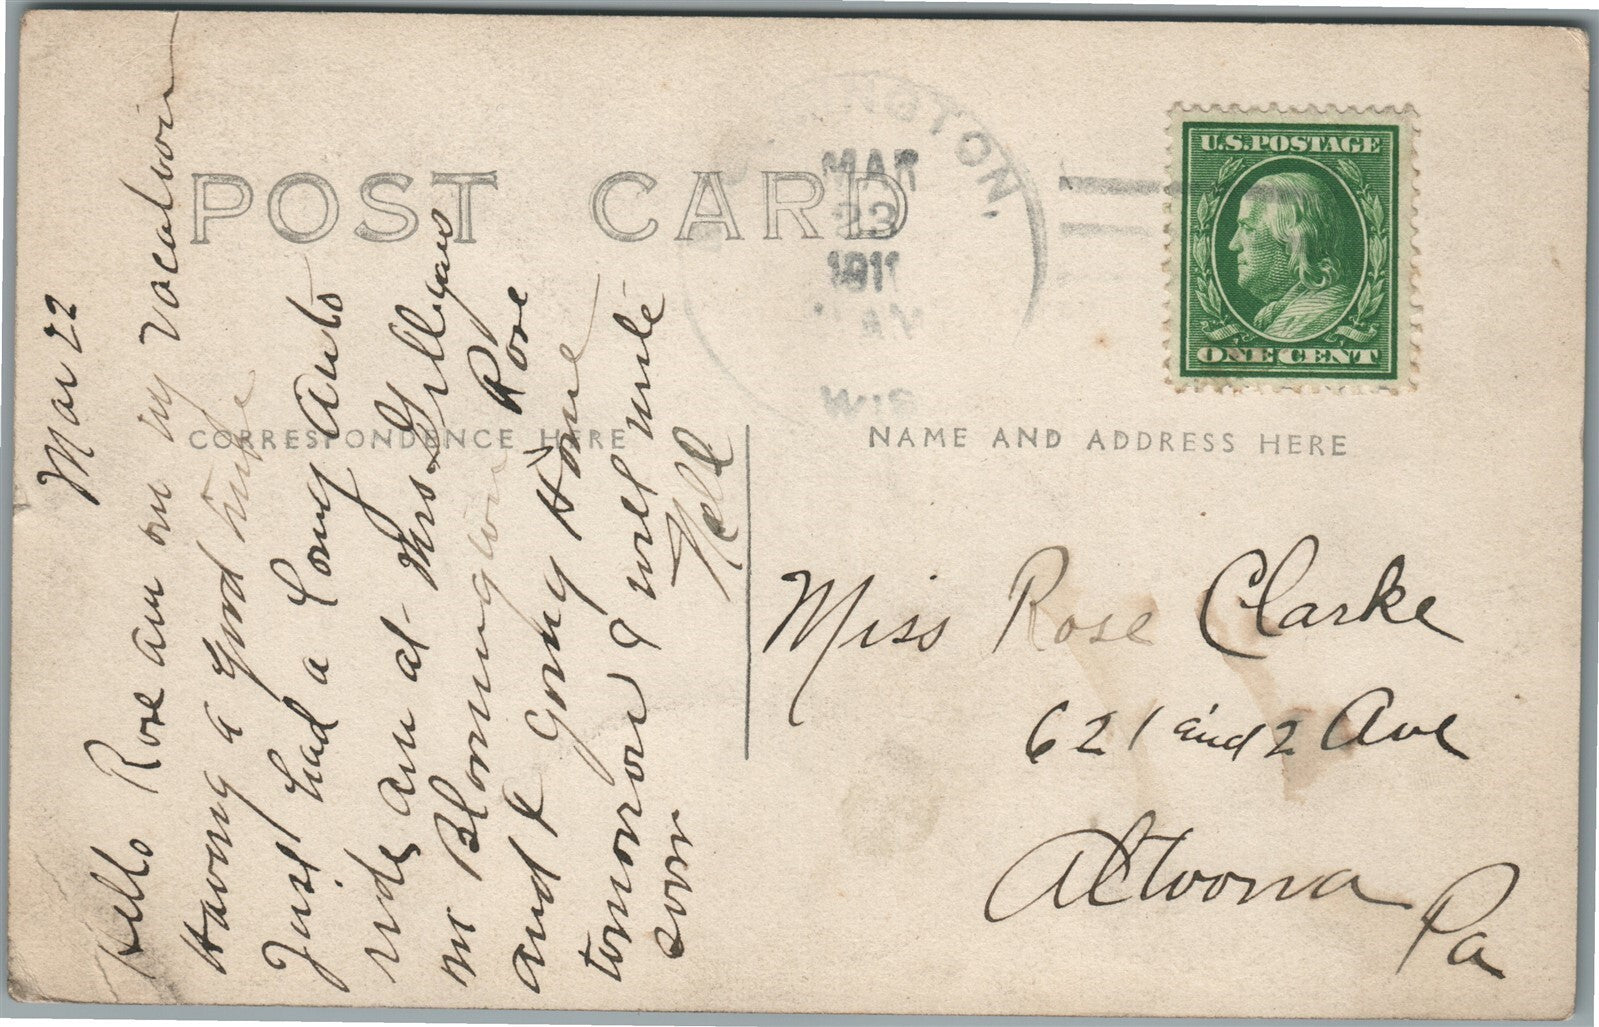 POST CARD
CORRESPONDENCE HERE
NAME AND ADDRESS HERE
U.S.POSTAGE
ONE CENT
INGTON.
MAR
23
1911
WIS
Mar 22
Hello Rose am on my vacation
Having a good time
Just had a long Auto
ride am at Mrs
in Bloomington Rose
and I going Home
tomorow I will write
soon Nell
Miss Rose Clarke
621 and 2 Ave
Altoona
Pa